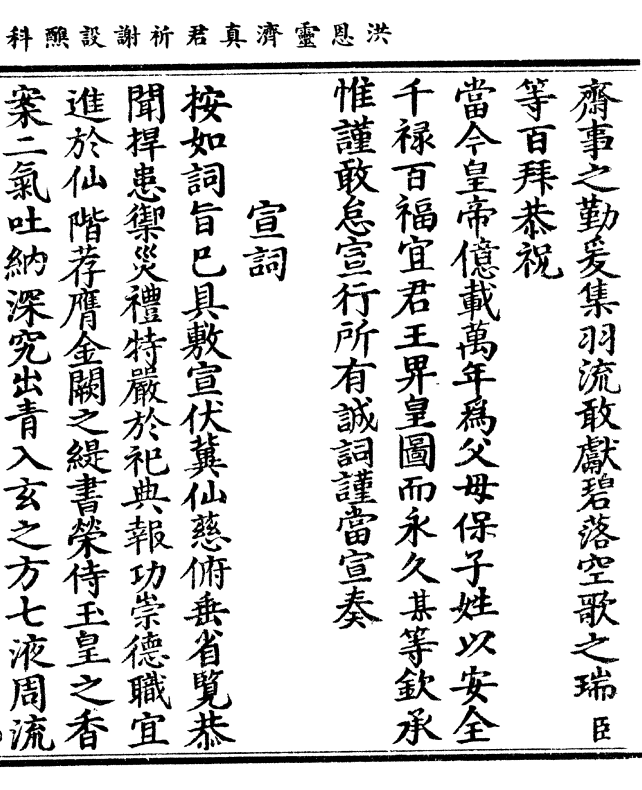 洪恩靈濟真君祈謝設醮科
齋事之勤爰集羽流敢獻碧落空歌之瑞臣
等百拜恭祝
當今皇帝億載萬年爲父母保子姓以安全
千禄百福宜君王畀皇圖而永久某等欽承
惟謹敢怠宣行所有誠詞謹當宣奏
宣詞
按如詞旨巳具敷宣伏冀仙慈俯垂省覽恭
聞捍患禦災禮特嚴於祀典報功崇德職宜
進於仙階荐膺金闕之緹書榮侍玉皇之香
案二氣吐納深究出青入玄之方七液周流